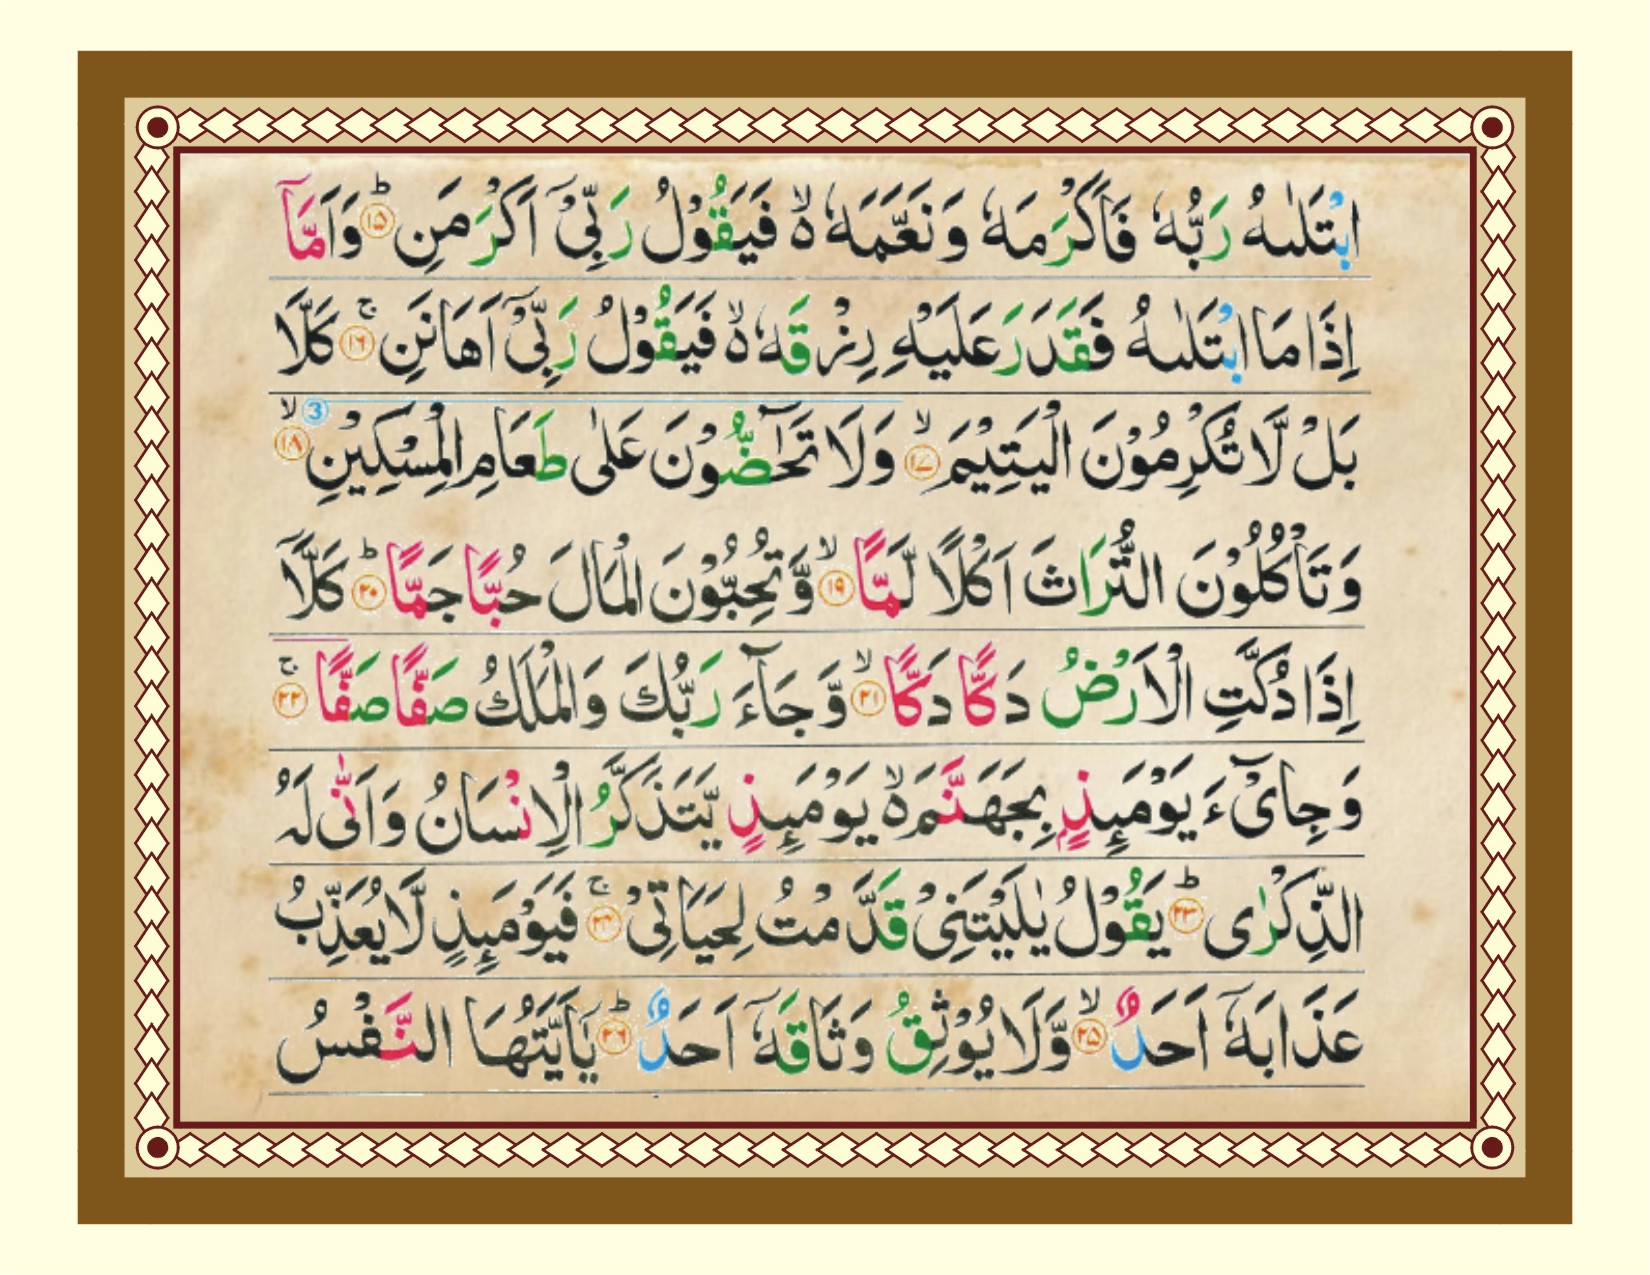 ابْتَلٰىهُ رَبُّهٗ فَاَكْرَمَهٗ وَنَعَّمَهٗ ۙ۬ فَيَقُوْلُ رَبِّىْۤ اَكْرَمَنِ ؕ ﴿۱۵﴾ وَاَمَّاۤ
اِذَا مَا ابْتَلٰىهُ فَقَدَرَ عَلَيْهِ رِزْقَهٗ ۙ۬ فَيَقُوْلُ رَبِّىْۤ اَهَانَنِ ۚ ﴿۱۶﴾ كَلَّا
بَلْ لَّا تُكْرِمُوْنَ الْيَتِيْمَ ۙ ﴿۱۷﴾ وَلَا تَحٰٓضُّوْنَ عَلٰى طَعَامِ الْمِسْكِيْنِ ۙ ﴿۱۸﴾ 3
وَتَاْكُلُوْنَ التُّرَاثَ اَكْلًا لَّمًّا ۙ ﴿۱۹﴾ وَّتُحِبُّوْنَ الْمَالَ حُبًّا جَمًّا ؕ ﴿۲۰﴾ كَلَّاۤ
اِذَا دُكَّتِ الْاَرْضُ دَكًّا دَكًّا ۙ ﴿۲۱﴾ وَّجَآءَ رَبُّكَ وَالْمَلَكُ صَفًّا صَفًّا ۚ ﴿۲۲﴾
وَجِاىْٓءَ يَوْمَٮِٕذٍۭ بِجَهَنَّمَ ۙ۬ يَوْمَٮِٕذٍ يَّتَذَكَّرُ الْاِنْسَانُ وَاَنّٰى لَهُ
الذِّكْرٰى ؕ ﴿۲۳﴾ يَقُوْلُ يٰلَيْتَنِىْ قَدَّمْتُ لِحَيَاتِىْ ۚ ﴿۲۴﴾ فَيَوْمَٮِٕذٍ لَّا يُعَذِّبُ
عَذَابَهٗۤ اَحَدٌ ۙ ﴿۲۵﴾ وَّلَا يُوْثِقُ وَثَاقَهٗۤ اَحَدٌ ؕ ﴿۲۶﴾ يٰۤاَيَّتُهَا النَّفْسُ